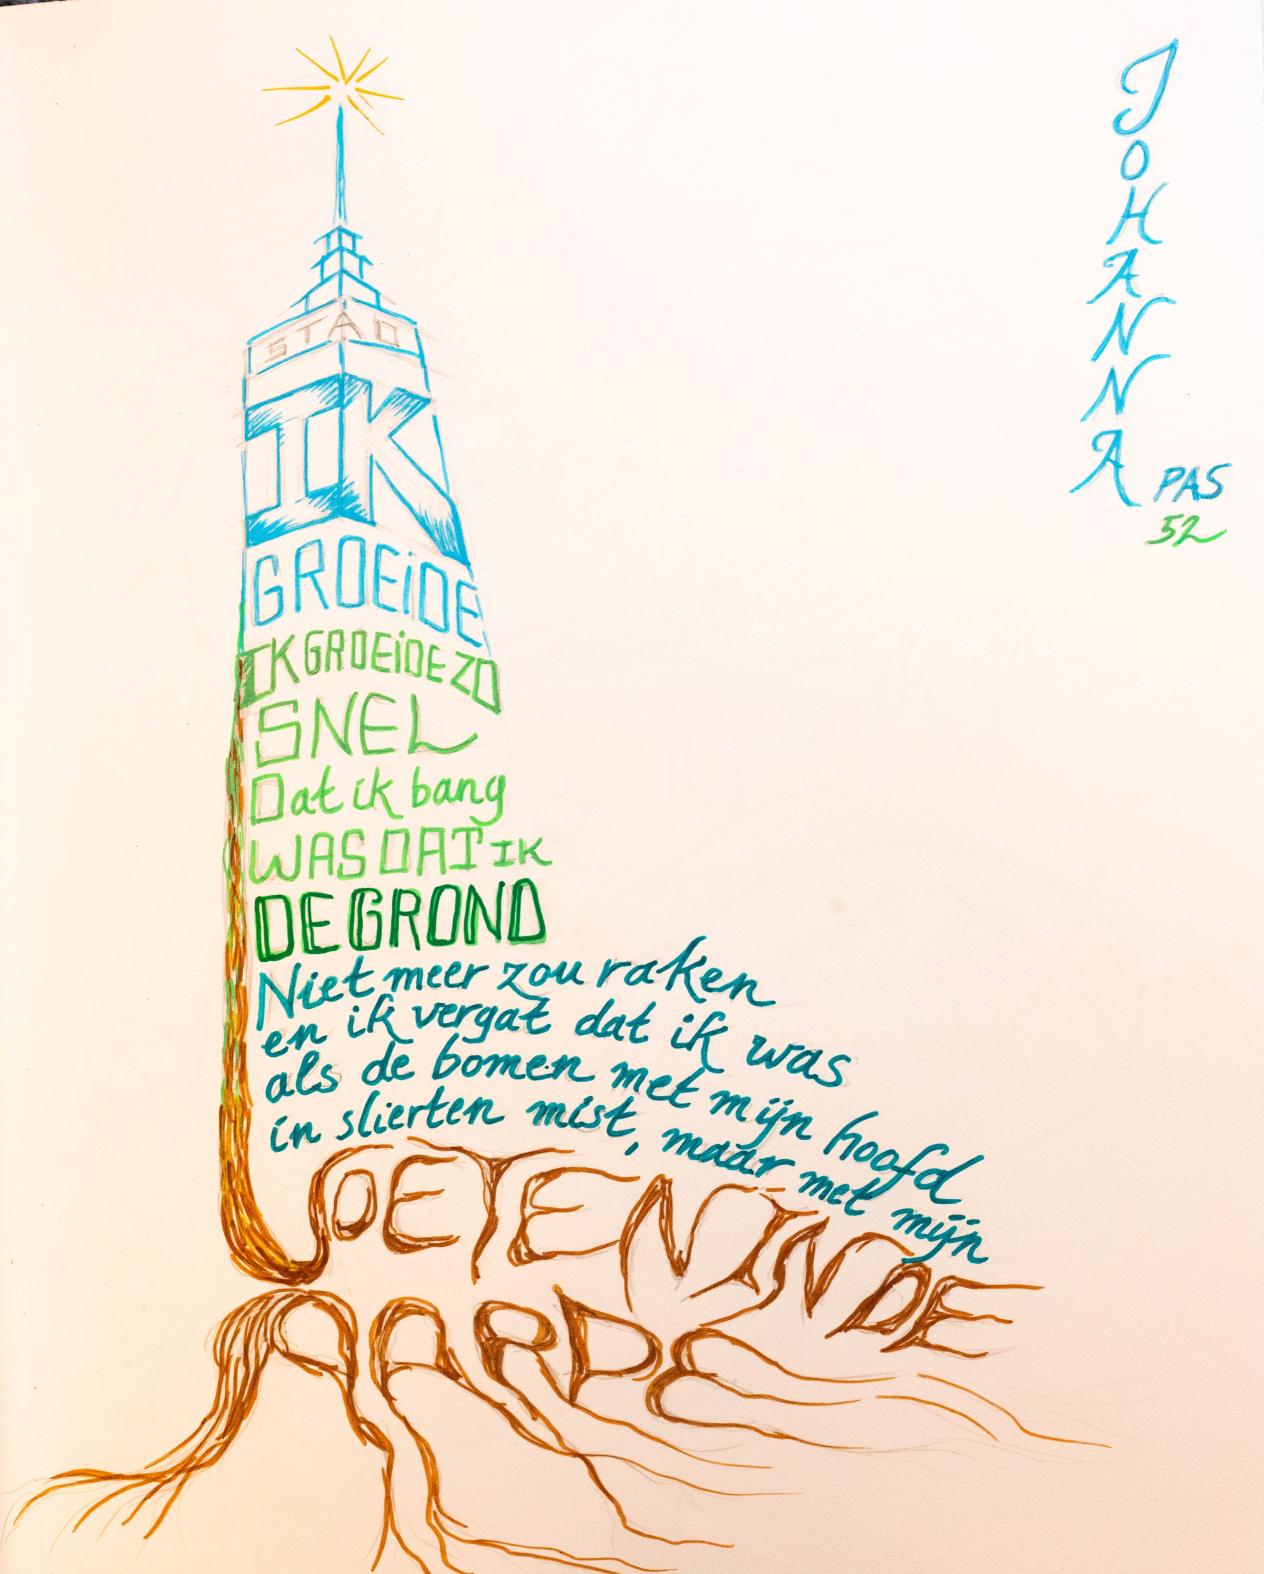 STAD
IK
GROEiDE
IK GROEiDE ZO
SNEL
Dat ik bang
WAS DAT IK
DE GROND
Niet meer zou raken
en ik vergat dat ik was
als de bomen met mijn hoofd
in slierten mist, maar met mijn
VOETEN IN DE
AARDE
JOHANNA
PAS
52